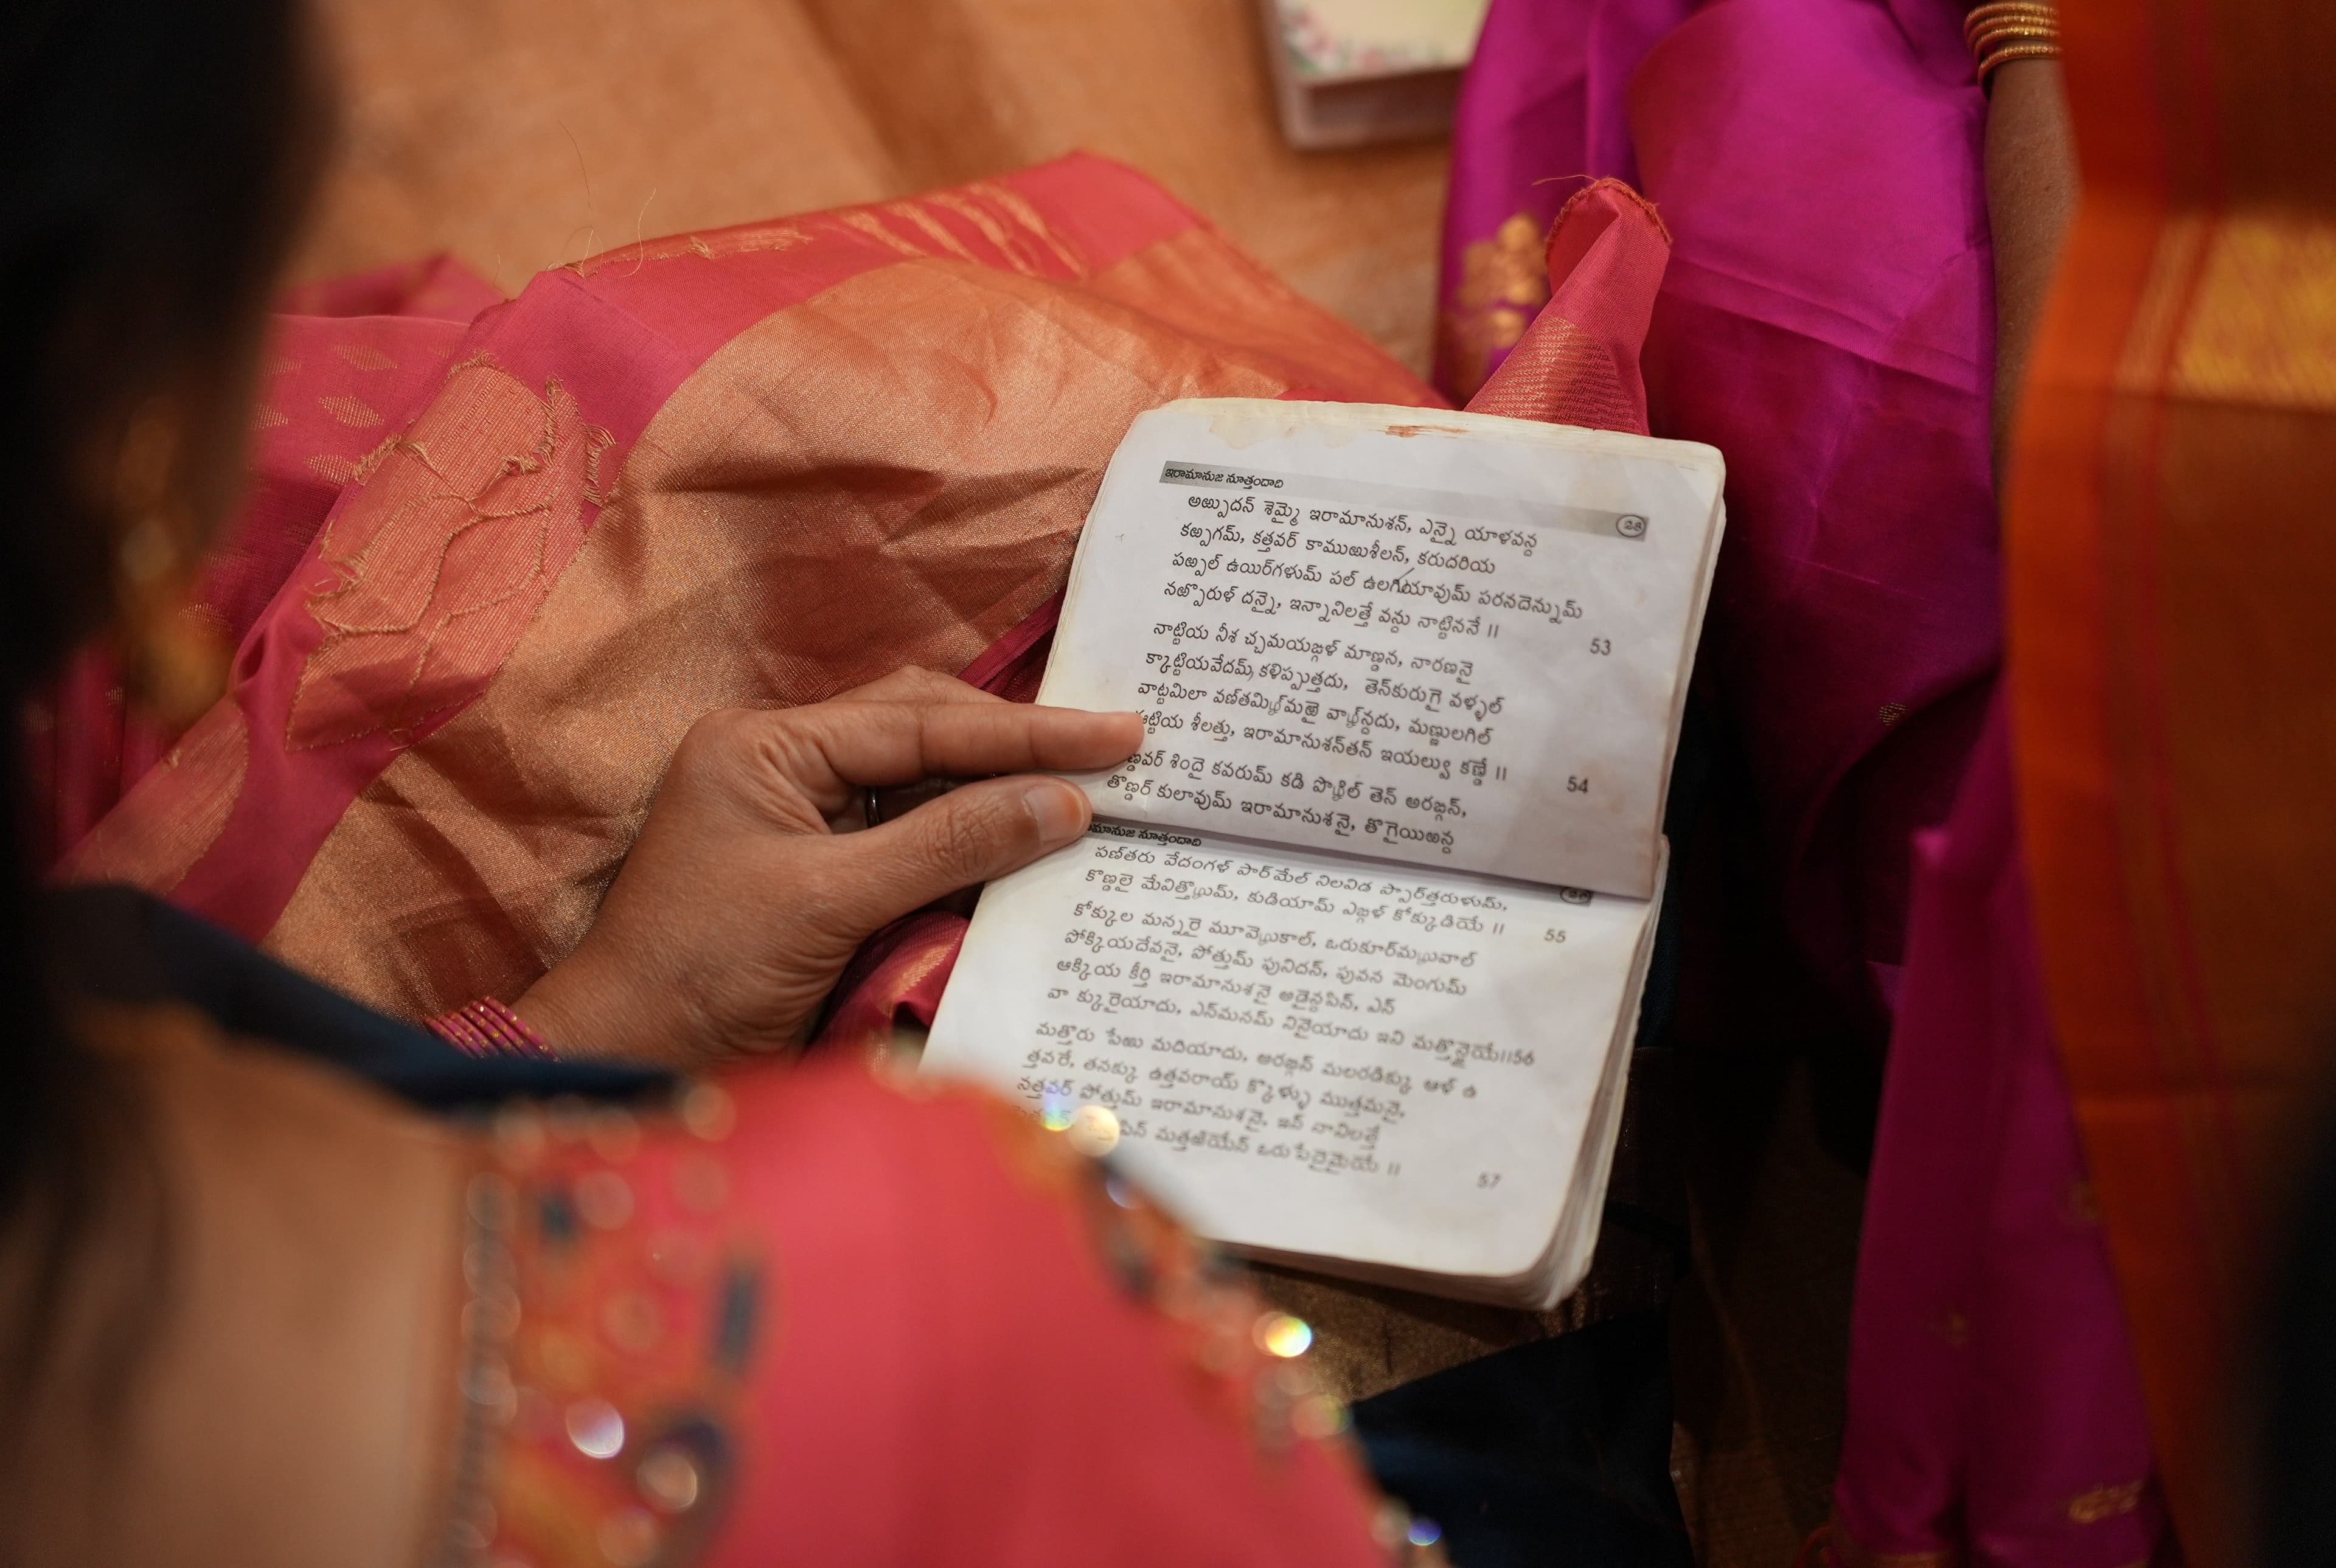 ఇరామానుజ నూత్తందాది
అఱ్పుదన్ శెమ్మై ఇరామానుశన్, ఎన్నై యాళవన్ద
కఱ్పగమ్, కత్తవర్ కాముఱుశీలన్, కరుదరియ
పఱ్పల్ ఉయిర్‌గళుమ్ పల్ ఉలగియావుమ్ పరనదెన్నుమ్
నఱ్పొరుళ్ దన్నై, ఇన్నానిలత్తే వన్దు నాట్టిననే ॥ 53
నాట్టియ నీశ చ్చమయఙ్గళ్ మాణ్డన, నారణనై
క్కాట్టియవేదమ్ కళిప్పుత్తదు, తెన్‌కురుగై వళ్ళల్
వాట్టమిలా వణ్‌తమిழ்మఱై వాழ்న్దదు, మణ్ణులగిల్
ఈట్టియ శీలత్తు, ఇరామానుశన్‌తన్ ఇయల్వు కణ్డే ॥ 54
ణ్డవర్ శిన్దై కవరుమ్ కడి పొழிల్ తెన్ అరఙ్గన్,
తొణ్డర్ కులావుమ్ ఇరామానుశనై, తొగైయిఱన్ద
మానుజ నూత్తందాది
పణ్‌తరు వేదంగళ్ పార్‌మేల్ నిలవిడ ప్పార్‌త్తరుళుమ్,
కొణ్డలై మేవిత్తొழுమ్, కుడియామ్ ఎఙ్గళ్ కోక్కుడియే ॥ 55
కోక్కుల మన్నరై మూవెழுకాల్, ఒరుకూర్‌మழுవాల్
పోక్కియదేవనై, పోత్తుమ్ పునిదన్, పువన మెంగుమ్
ఆక్కియ కీర్తి ఇరామానుశనై అడైన్దపిన్, ఎన్
వా క్కురైయాదు, ఎన్‌మనమ్ నినైయాదు ఇని మత్తొన్ఱైయే॥56
మత్తొరు పేఱు మదియాదు, అరఙ్గన్ మలరడిక్కు ఆళ్ ఉ
త్తవరే, తనక్కు ఉత్తవరాయ్ క్కొళ్ళు ముత్తమనై,
నత్తవర్ పోత్తుమ్ ఇరామానుశనై, ఇన్ నానిలత్తే
పిన్ మత్తఱియేన్ ఒరు పేరైమైయే ॥ 57